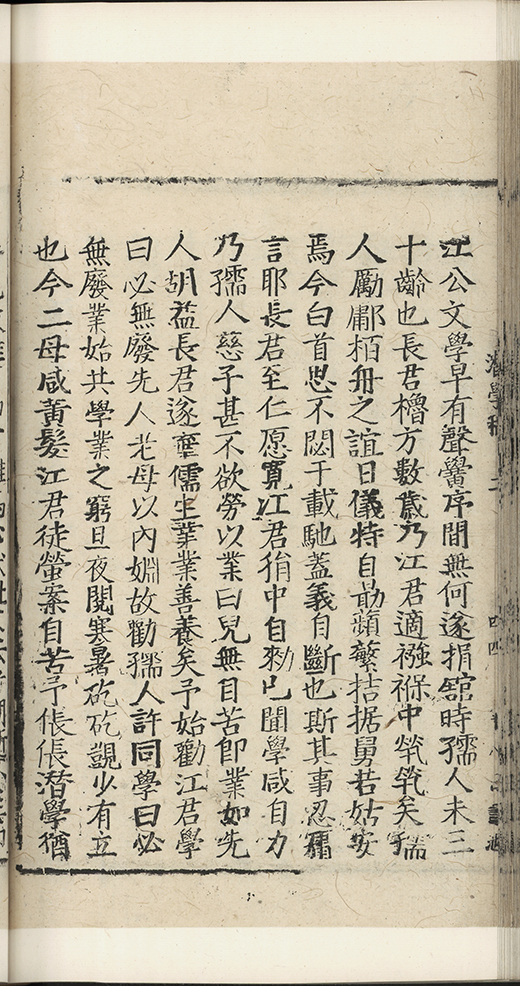 江公文學早有聲黌序間無何遂捐舘時孺人未三
十齡也長君櫓方數歲乃江君適襁褓中煢煢矣孺
人勵鄘栢舟之誼日儀特自勗蘋蘩拮据舅若姑安
焉今白首思不悶于載馳蓋義自斷也斯其事忍
言耶長君至仁愿寬江君狷中自勑已聞學咸自力
乃孺人慈子甚不欲勞以業曰兒無目苦即業如先
人胡益長君遂棄儒生業業善養矣予始勸江君學
曰必無廢先人老母以內婣故勸孺人許同學曰必
無廢業始共學業之窮旦夜閱寒暑矻矻覬少有立
也今二母咸黃髮江君徒螢案自苦予倀倀潛學猶
潛學稿
四四